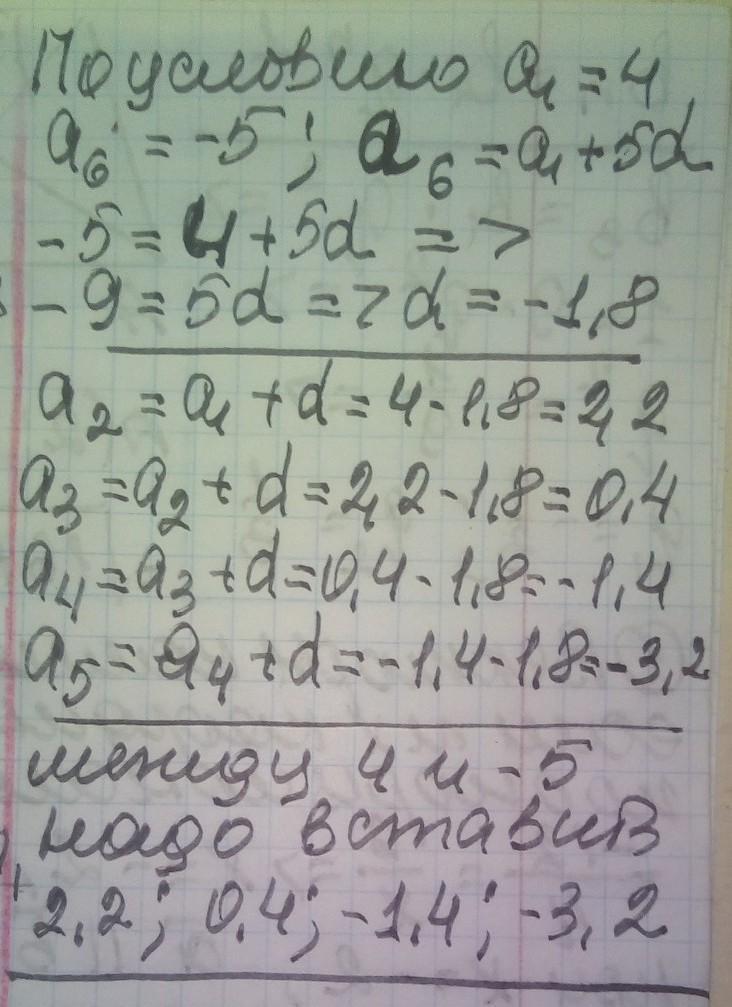 По условию a₁ = 4
a₆ = -5; a₆ = a₁ + 5d
-5 = 4 + 5d =>
-9 = 5d => d = -1,8
a₂ = a₁ + d = 4 - 1,8 = 2,2
a₃ = a₂ + d = 2,2 - 1,8 = 0,4
a₄ = a₃ + d = 0,4 - 1,8 = -1,4
a₅ = a₄ + d = -1,4 - 1,8 = -3,2
между 4 и -5
надо вставить
2,2; 0,4; -1,4; -3,2